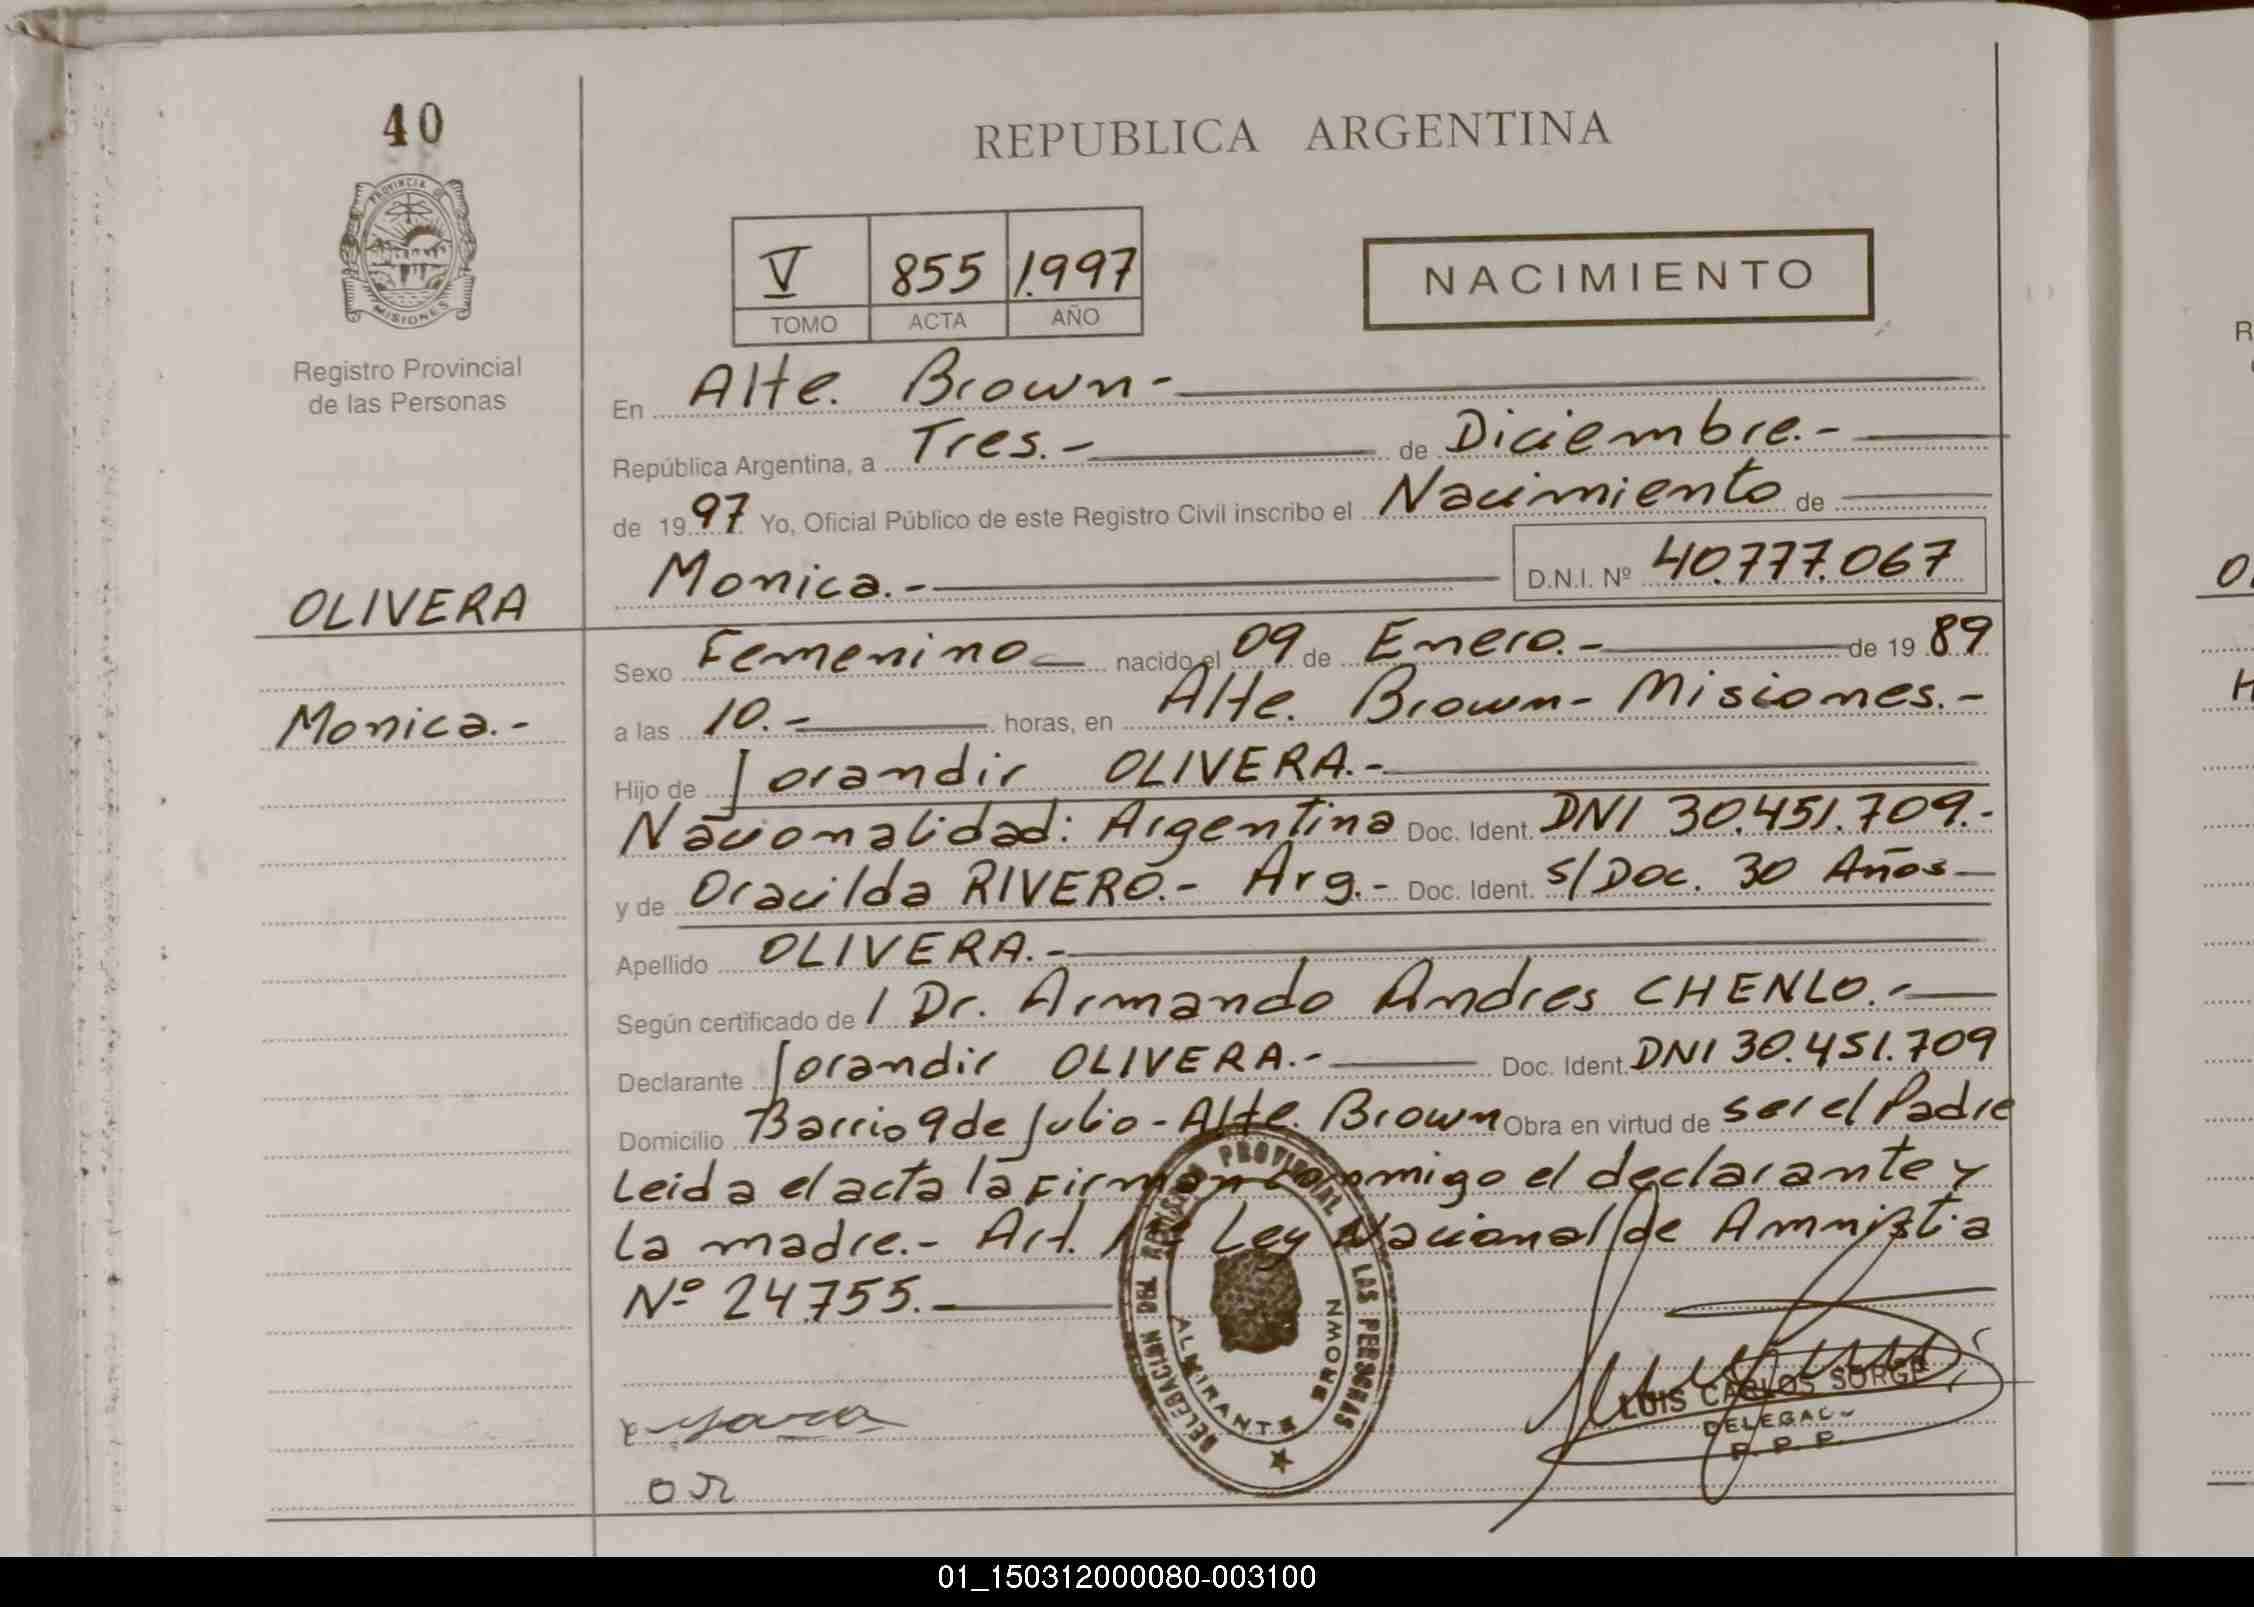 40
REPUBLICA ARGENTINA
PROVINCIA DE
MISIONES
Registro Provincial
de las Personas
V 855 1.997
TOMO ACTA AÑO
NACIMIENTO
En Alte. Brown-
República Argentina, a Tres.- de Diciembre.-
de 1997 Yo, Oficial Público de este Registro Civil inscribo el Nacimiento de
Monica.- D.N.I. Nº 40.777.067
OLIVERA
Monica.-
Sexo Femenino nacido el 09 de Enero.- de 1989
a las 10.- horas, en Alte. Brown- Misiones.-
Hijo de Jorandir OLIVERA.-
Nacionalidad: Argentina Doc. Ident. DNI 30.451.709.-
y de Oracilda RIVERO.- Arg.- Doc. Ident. S/Doc. 30 Años
Apellido OLIVERA.-
Según certificado de 1 Dr. Armando Andres CHENLO.-
Declarante Jorandir OLIVERA.- Doc. Ident. DNI 30.451.709
Domicilio Barrio 9 de Julio - Alte. Brown Obra en virtud de ser el Padre
Leida el acta la Firman conmigo el declarante y
La madre.- Art. Ley Nacional de Amnistia
Nº 24.755.
PROVINCIAL DE LAS PERSONAS
ALMIRANTE BROWN
LUIS CARLOS SORGE
R. P. P.
OR
01_150312000080-003100